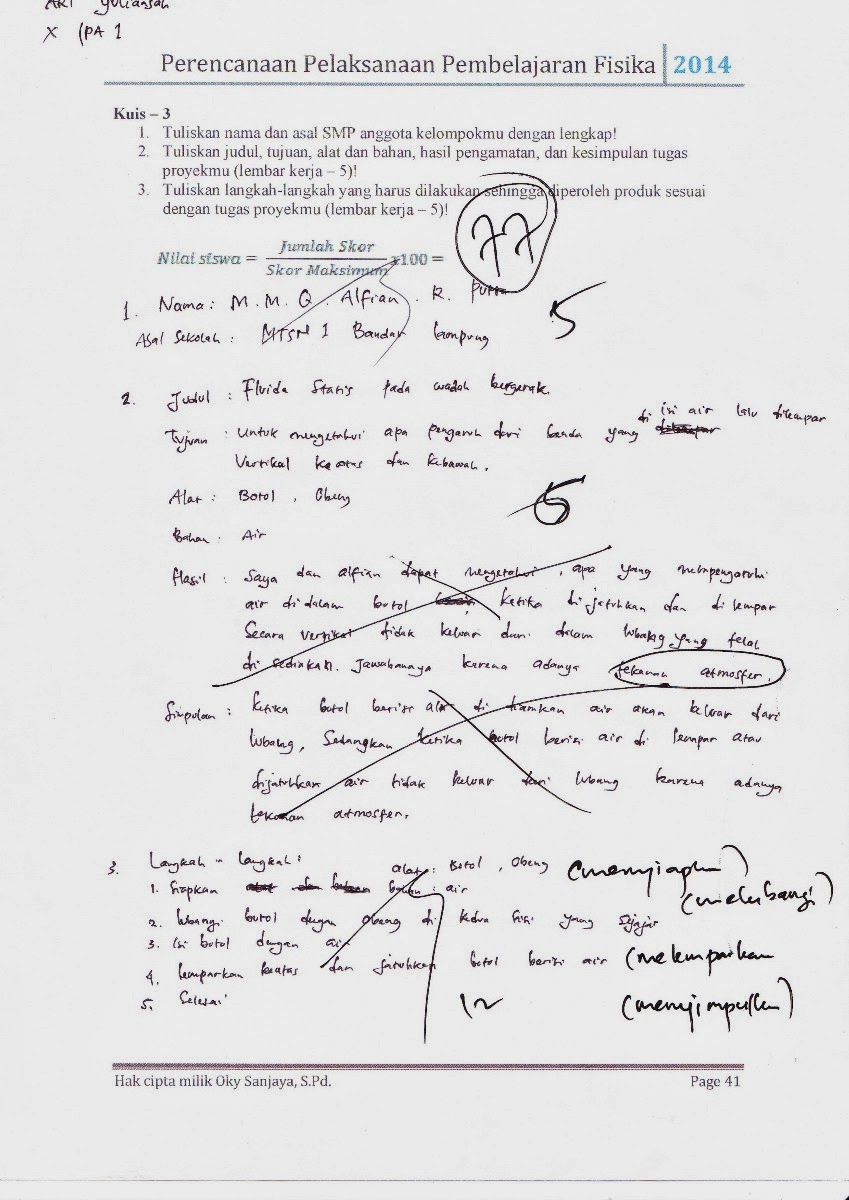 ARI Yuliansah
X IPA 1
Perencanaan Pelaksanaan Pembelajaran Fisika 2014
Kuis – 3
1. Tuliskan nama dan asal SMP anggota kelompokmu dengan lengkap!
2. Tuliskan judul, tujuan, alat dan bahan, hasil pengamatan, dan kesimpulan tugas
proyekmu (lembar kerja – 5)!
3. Tuliskan langkah-langkah yang harus dilakukan sehingga diperoleh produk sesuai
dengan tugas proyekmu (lembar kerja – 5)!
Nilai siswa = Jumlah Skor / Skor Maksimum x100 =
77
1. Nama : M. M. Q. Alfian . R. Putra
5
Asal Sekolah : MTSN 1 Bandar Lampung
2. Judul : Fluida Statis pada wadah bergerak.
Tujuan : Untuk mengetahui apa pengaruh dari benda yang di isi air lalu dilempar
Vertikal keatas dan kebawah.
Alat : Botol , Obeng
Bahan : Air
Hasil : Saya dan alfian dapat mengetahui , apa yang mempengaruhi
air di dalam botol ketika di jatuhkan dan di lempar
Secara vertikal tidak keluar dari dalam lubang yang telah
di sediakan. Jawabannya karena adanya tekanan atmosfer.
Simpulan : Ketika botol berisi air di diamkan air akan keluar dari
lubang, Sedangkan ketika botol berisi air di lempar atau
dijatuhkan air tidak keluar dari lubang karena adanya
tekanan atmosfer.
3. Langkah - langkah :
alat : Botol , Obeng (menyiapkan)
1. Siapkan bahan : air (melubangi)
2. lubangi botol dengan obeng di kedua sisi yang sejajar
3. Isi botol dengan air
4. lemparkan keatas dan jatuhkan botol berisi air (melemparkan
5. Selesai
12 (menyimpulkan)
Hak cipta milik Oky Sanjaya, S.Pd. Page 41